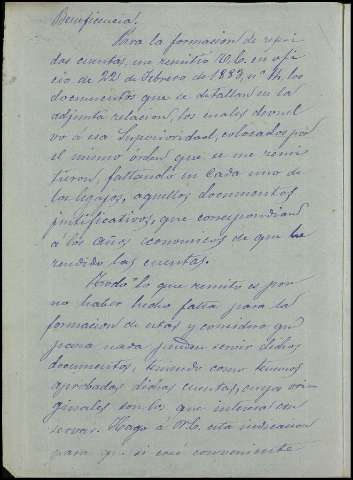 Beneficencia.
Para la formacion de repe-
das cuentas, me remitio V.E. en ofi-
cio de 22 de Febrero de 1883, nº 14, los
documentos que se detallan en la
adjunta relacion, los cuales devuel
vo á esa Superioridad, colocados por
el mismo órden que se me remi
tieron, faltando en cada uno de
los legajos, aquellos documentos
justificativos, que correspondian
a los años economicos de que he
rendido las cuentas.
Todo lo que remito es por
no haber hecho falta para la
formacion de estas y considero que
para nada pueden servir dichos
documentos, teniendo como tenemos
aprobadas dichas cuentas, cuyas ori-
ginales son los que interesa con
servar. Hago á V.E. esta indicacion
para que si cree conveniente